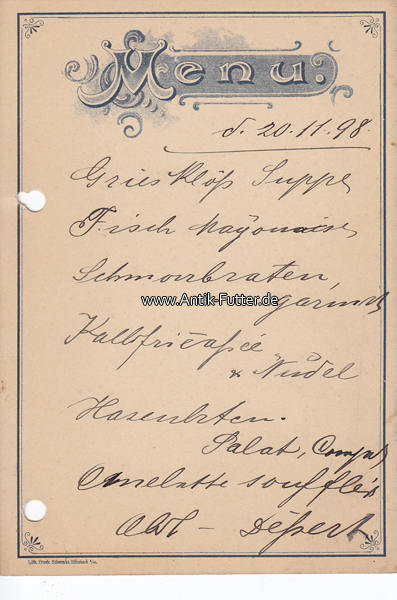 Menu.
d. 20.11.98.
Griesklöß Suppe
Fisch Mayonaise
Schmorbraten,
garnirt
www.Antik-Futter.de
Kalbfricassée
& Nudel
Hasenbraten.
Salat, Comp
Omelette soufflée
Obst - Dessert